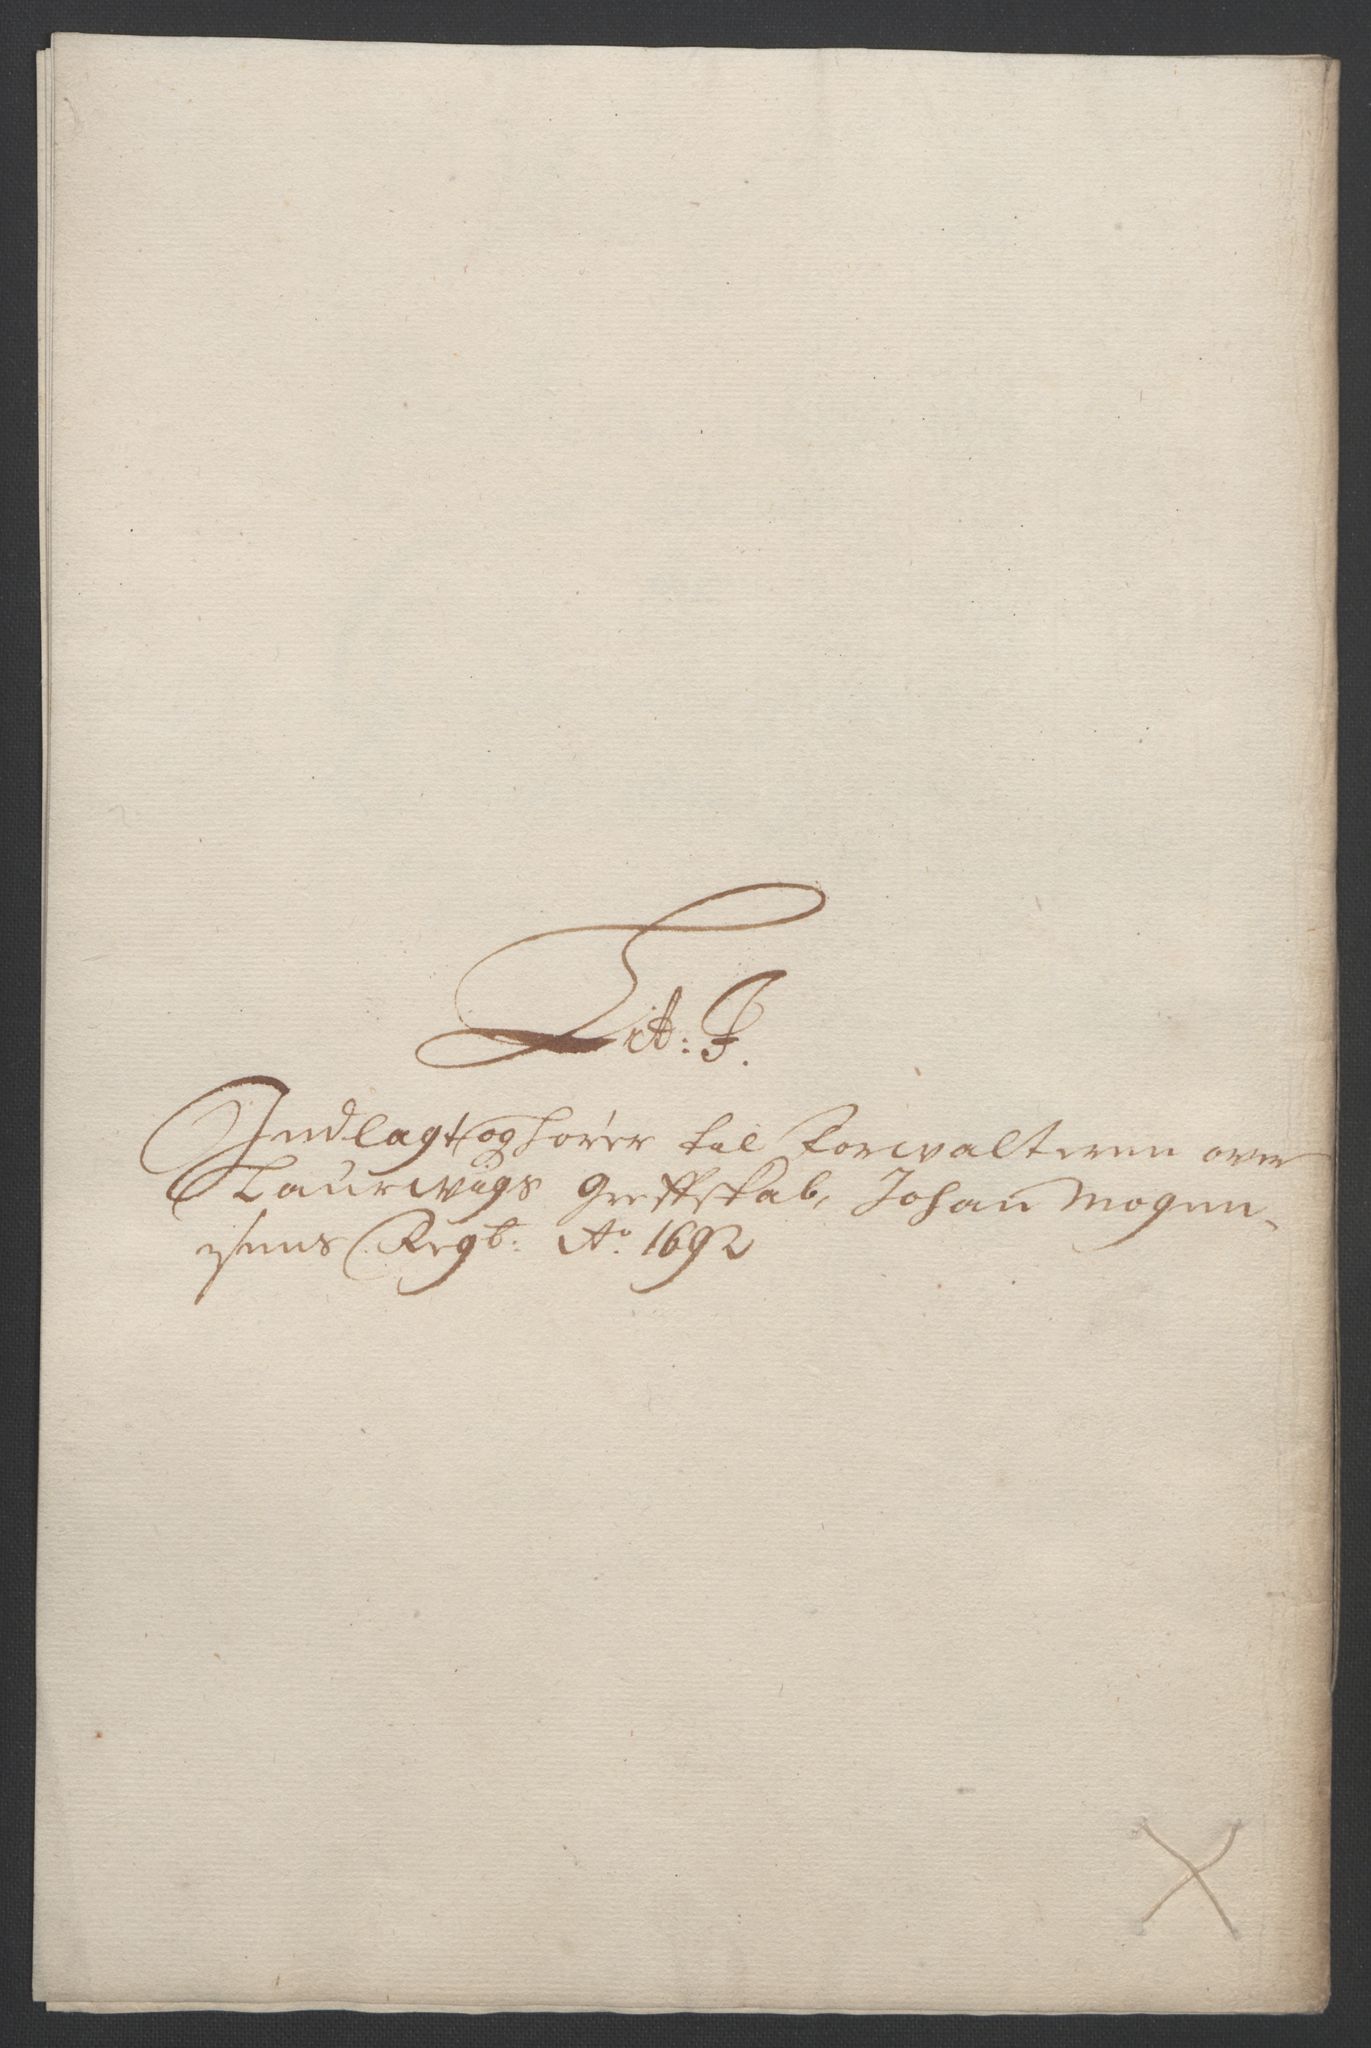 Lit: J.
Indlagt og hører til Forwalteren over
Laurwigs Greffskab, Johan Mogen-
sens Regb: Ao. 1692